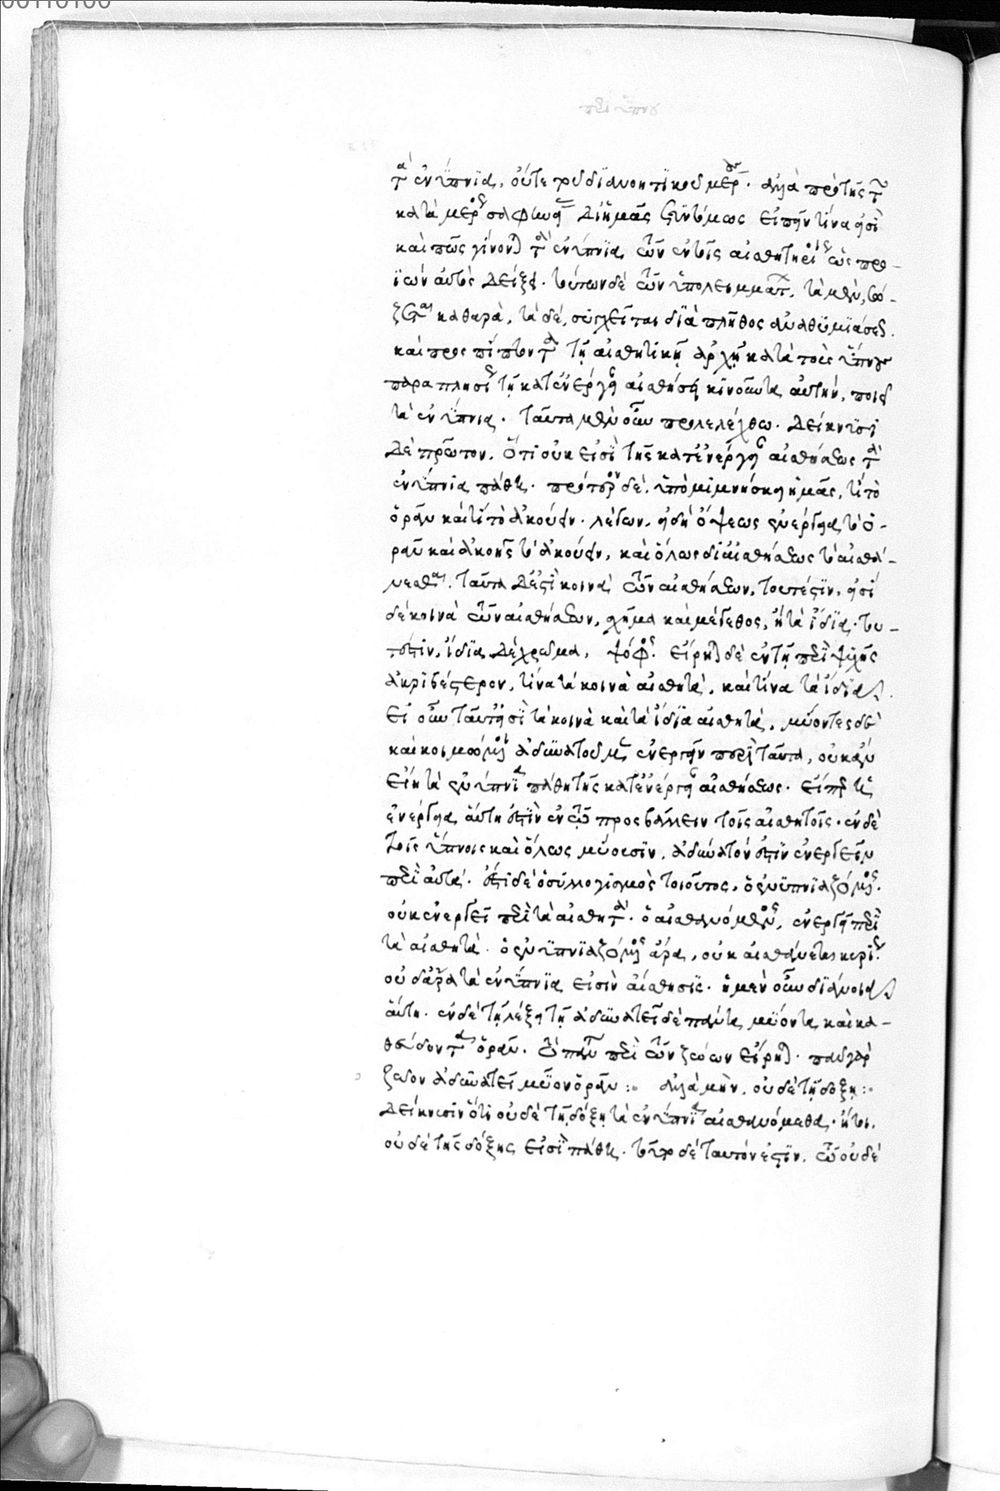 περὶ ὕπνου
τὰ ἐνύπνια, οὔτε τοῦ διανοητικοῦ μέρους. ἀλλὰ πρὸ τῆς
κατὰ μέρος σαφηνείας δεῖ ἡμᾶς συντόμως εἰπεῖν τίνα εἰσὶ
καὶ πῶς γίνονται τὰ ἐνύπνια, τῶν ἐν τοῖς αἰσθητηρίοις ὡς προ-
ϊὼν αὐτὸς δείξει. τύπων δὲ τῶν ὑπολειμμάτων, τὰ μὲν, σώ-
ζεται καθαρὰ, τὰ δὲ, συγχεῖται διὰ πλῆθος ἀναθυμιάσεως.
καὶ προσπίπτοντα τῇ αἰσθητικῇ ἀρχῇ κατὰ τοὺς ὕπνους
παραπλησίως τῇ κατ' ἐνέργειαν αἰσθήσει κινοῦντα αὐτὴν, ποιεῖ
τὰ ἐνύπνια. ταῦτα μὲν οὖν προλελέχθω. δείκνυσι
δὲ πρῶτον, ὅτι οὐκ εἰσὶ τῆς κατ' ἐνέργειαν αἰσθήσεως τὰ
ἐνύπνια πάθη. πρότερον δὲ, ὑπομιμνήσκει ἡμᾶς, τί τὸ
ὁρᾶν καὶ τί τὸ ἀκούειν. λέγων, εἰ δὴ ὄψεως ἐνέργεια τὸ ὁ-
ρᾶν καὶ ἀκοῆς τὸ ἀκούειν, καὶ ὅλως δι' αἰσθήσεως τὸ αἰσθά-
νεσθαι. ταῦτα δέ ἐστι κοινὰ τῶν αἰσθήσεων, τουτέστιν, εἰσὶ
δὲ κοινὰ τῶν αἰσθήσεων, σχῆμα καὶ μέγεθος, ἢ τὰ ἴδια. του-
τέστιν, ἴδια δὲ χρῶμα, ψόφος. εἴρηται δὲ ἐν τῇ περὶ ψυχῆς
ἀκριβέστερον, τίνα τὰ κοινὰ αἰσθητὰ, καὶ τίνα τὰ ἴδια.
εἰ οὖν ταῦτ' εἰσὶ τὰ κοινὰ καὶ τὰ ἴδια αἰσθητὰ, μύοντες δὲ
καὶ κοιμώμενοι ἀδυνατοῦμεν ἐνεργεῖν περὶ ταῦτα, οὐκ ἂν
εἴη τὰ ἐνύπνια πάθη τῆς κατ' ἐνέργειαν αἰσθήσεως. εἴπερ ἡ
ἐνέργεια αὕτη ἐστὶν ἐν τῷ προσβάλλειν τοῖς αἰσθητοῖς. ἐν δὲ
τοῖς ὕπνοις καὶ ὅλως μύουσιν, ἀδύνατόν ἐστιν ἐνεργεῖν
περὶ αὐτά. ἔστι δὲ ὁ συλλογισμὸς τοιοῦτος, ὁ ἐνυπνιαζόμενος.
οὐκ ἐνεργεῖ περὶ τὰ αἰσθητά. ὁ αἰσθανόμενος, ἐνεργεῖ περὶ
τὰ αἰσθητὰ. ὁ ἐνυπνιαζόμενος ἄρα, οὐκ αἰσθάνεται κυρίως.
οὐδ' ἄρα τὰ ἐνύπνια εἰσὶν αἴσθησις. ἡ μὲν οὖν διάνοια
αὕτη. ἐν δὲ τῇ λέξει τῇ ἀδυνατεῖ δὲ πάντα μύοντα καὶ κα-
θεύδοντα ὁρᾶν. τὸ πάντα περὶ τῶν ζῴων εἴρηται. πᾶν γὰρ
ζῷον ἀδυνατεῖ μῦον ὁρᾶν :~ ἀλλὰ μὴν, οὐδὲ τῇ δόξῃ :~
δείκνυσιν ὅτι οὐδὲ τῇ δόξῃ τὰ ἐνύπνια αἰσθανόμεθα. ἤτοι.
οὐδὲ τῆς δόξης εἰσὶ πάθη. τοῦτο δὲ ταυτόν ἐστιν, τῷ οὐδὲ